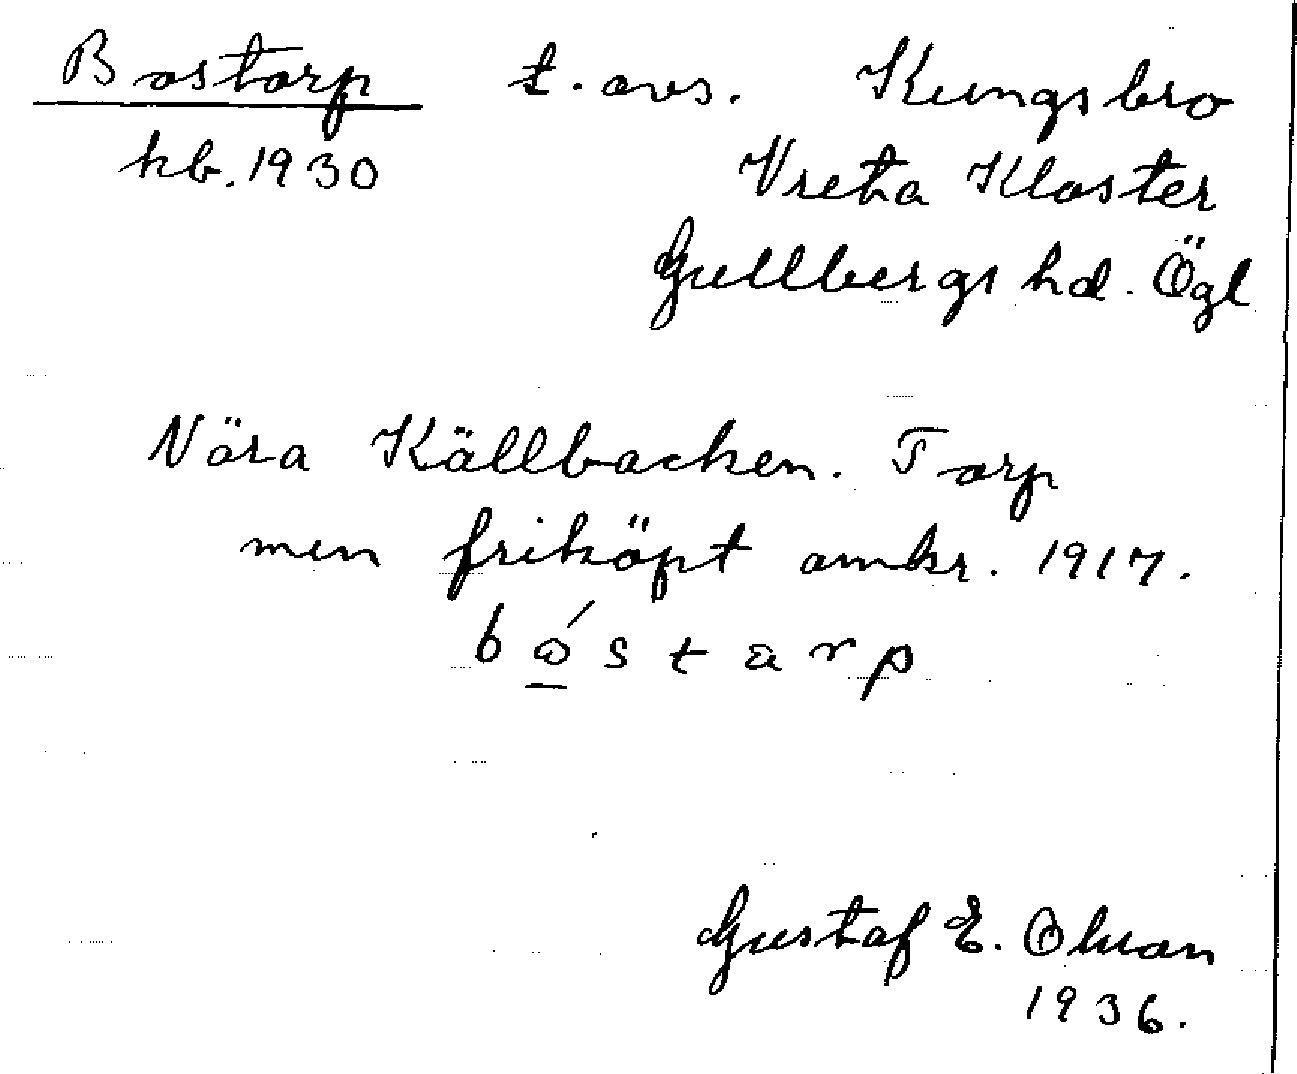 Bostorp t. avs. Kungsbro
kb. 1930 Vreta Kloster
Gullbergs hd. Ögl
Nära Källbacken. Torp
men friköpt omkr. 1917.
bó̲starp
Gustaf E. Olsson
1936.